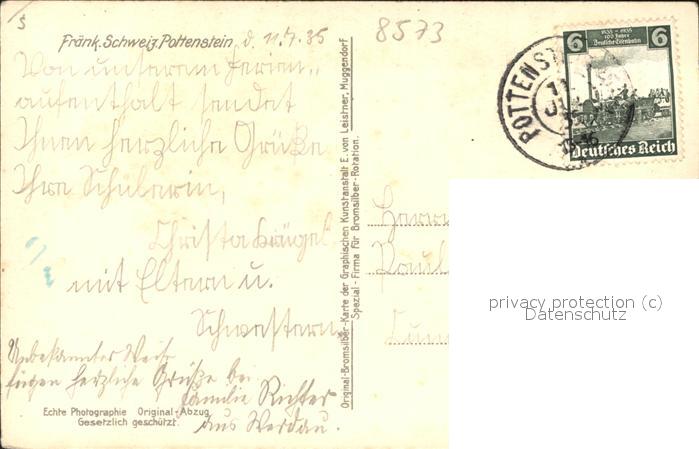 5
8573
Fränk. Schweiz. Pottenstein d. 11.7.35
Von unserem Ferien„
aufenthalt sendet
Ihnen herzliche Grüße
Ihre Schülerin,
Christa Krügel
mit Eltern u.
Schwestern.
Unbekannter Weise
fügen herzliche Grüße bei
Familie Richter
aus Werdau.
Echte Photographie Original-Abzug
Gesetzlich geschützt.
Original-Bromsilber-Karte der Graphischen Kunstanstalt E. von Leistner, Muggendorf
Spezial-Firma für Bromsilber-Rotation.
POTTENST
11
6 1835-1935 6
100 Jahre
Deutsche Eisenbahn
Deutsches Reich
Herrn
Paul
privacy protection (c)
Datenschutz